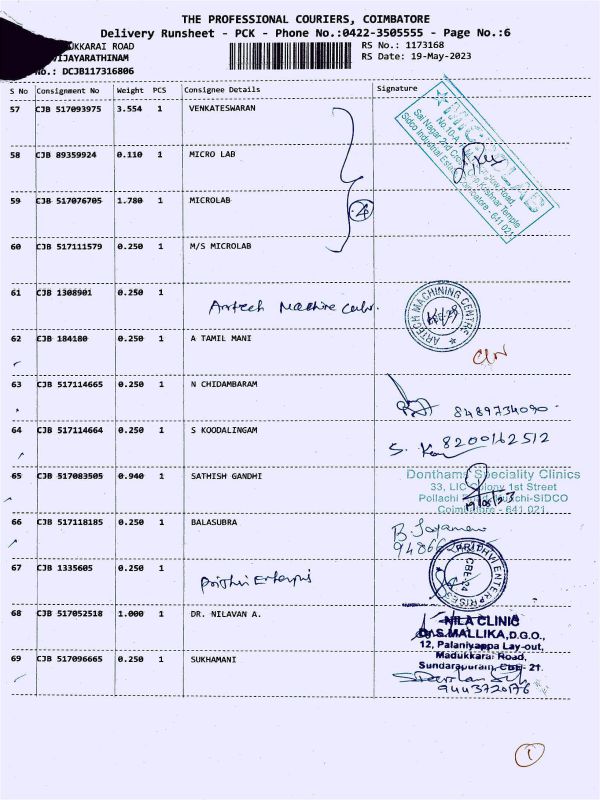 THE PROFESSIONAL COURIERS, COIMBATORE
Delivery Runsheet - PCK - Phone No.:0422-3505555 - Page No.:6
UKKARAI ROAD
RS No.: 1173168
VIJAYARATHINAM
RS Date: 19-May-2023
No.: DCJB117316806
S No Consignment No Weight PCS Consignee Details Signature
57 CJB 517093975 3.554 1 VENKATESWARAN
58 CJB 89359924 0.110 1 MICRO LAB
Sai Nagar 2nd Cross
Sidco Industrial Estate, Coimbatore - 641 021
59 CJB 517076705 1.780 1 MICROLAB
4
60 CJB 517111579 0.250 1 M/S MICROLAB
61 CJB 1308901 0.250 1
Artech Machine
ARTECH MACHINING CENTRE
62 CJB 184180 0.250 1 A TAMIL MANI
63 CJB 517114665 0.250 1 N CHIDAMBARAM
8489734090
64 CJB 517114664 0.250 1 S KOODALINGAM
8200162512
65 CJB 517083505 0.940 1 SATHISH GANDHI
Donthams Speciality Clinics
33, LIC Colony 1st Street
Pollachi
-SIDCO
Coimbatore - 641 021.
19/05/23
66 CJB 517118185 0.250 1 BALASUBRA
67 CJB 1335605 0.250 1
Prithvi
PRITHVI ENTERPRISES
CBE-24
68 CJB 517052518 1.000 1 DR. NILAVAN A.
NILA CLINIC
Dr.S.MALLIKA,D.G.O.,
12, Palaniyappa Lay-out,
Madukkarai Road,
Sundarapuram, CBE- 21.
69 CJB 517096665 0.250 1 SUKHAMANI
9443720176
1